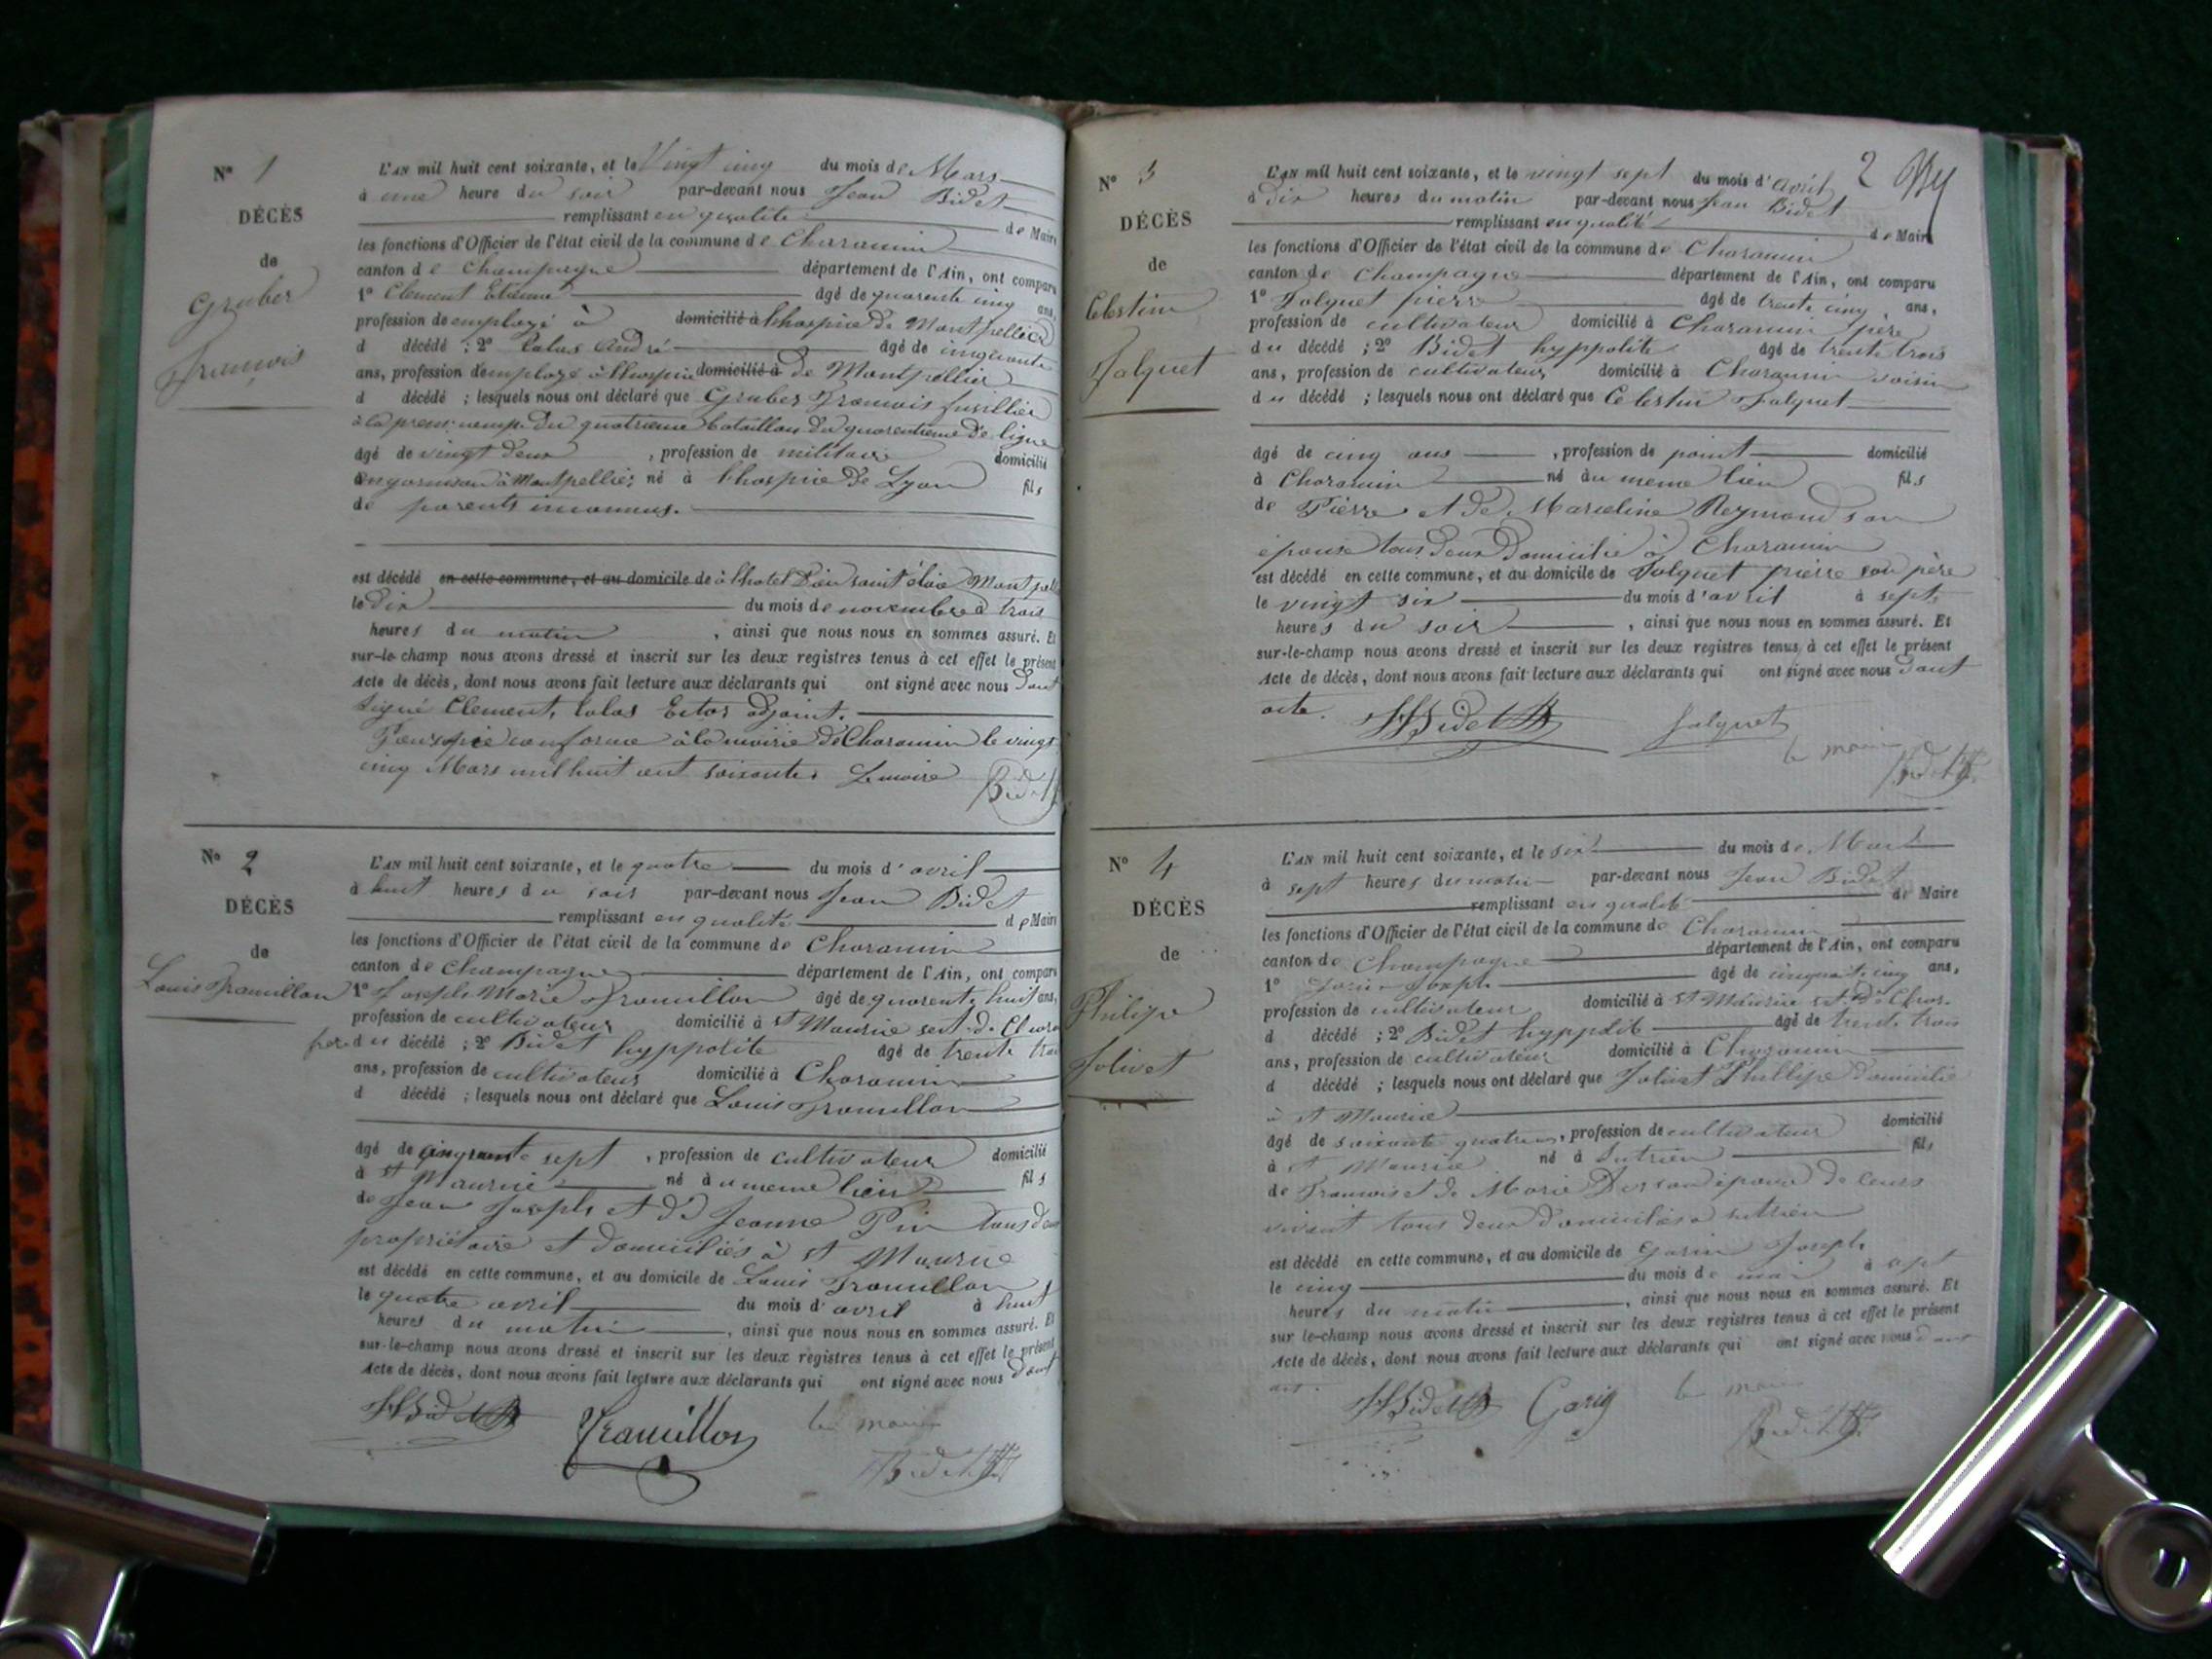 N° 1
DÉCÈS
de
Gruber
François
L'AN mil huit cent soixante, et le Vingt cinq du mois de Mars
à une heure du soir par-devant nous Jean Bidet
remplissant en qualité de Maire
les fonctions d'Officier de l'état civil de la commune de Charancin
canton de Champagne département de l'Ain, ont comparu
1° Clement Etienne âgé de quarente cinq ans,
profession de employé à domicilié à l'hospice de Montpellier
d décédé ; 2° Calas André âgé de cinquante
ans, profession d'employé à l'hospice domicilié à de Montpellier
d décédé ; lesquels nous ont déclaré que Gruber François fusillier
à la prem. comp. du quatrieme bataillon du quarentieme de ligne
âgé de vingt deux , profession de militaire domicilié
en garnison à Montpellier né à l'hospice de Lyon fils
de parents inconnus.
est décédé en cette commune, et au domicile de à l'hotel Dieu saint éloi Montpell
le dix du mois de novembre à trois
heures du matin , ainsi que nous nous en sommes assuré. Et
sur-le-champ nous avons dressé et inscrit sur les deux registres tenus à cet effet le présent
Acte de décès, dont nous avons fait lecture aux déclarants qui ont signé avec nous dont
signé Clement, Calas Estor adjoint.
Pour copie conforme à la mairie de Charancin le vingt
cinq Mars mil huit cent soixante. Le maire Bidet
N° 2
DÉCÈS
de
Louis Trouillon
L'AN mil huit cent soixante, et le quatre du mois d'avril
à huit heures du soir par-devant nous Jean Bidet
remplissant en qualité de Maire
les fonctions d'Officier de l'état civil de la commune de Charancin
canton de Champagne département de l'Ain, ont comparu
1° Joseph Marie Trouillon âgé de quarente huit ans,
profession de cultivateur domicilié à St Maurice sect. de Chara
frere du décédé ; 2° Bidet hyppolite âgé de trente trois
ans, profession de cultivateur domicilié à Charancin
d décédé ; lesquels nous ont déclaré que Louis Trouillon
âgé de cinquante sept , profession de cultivateur domicilié
à St Maurice né au meme lieu fils
de Jean Joseph et de Jeanne Pin tous deux
propriétaire et domiciliés à St Maurice
est décédé en cette commune, et au domicile de Louis Trouillon
le quatre avril du mois d'avril à huit
heures du matin , ainsi que nous nous en sommes assuré. Et
sur-le-champ nous avons dressé et inscrit sur les deux registres tenus à cet effet le présent
Acte de décès, dont nous avons fait lecture aux déclarants qui ont signé avec nous dont
HBidet Trouillon le maire
Bidet
2
N° 3
DÉCÈS
de
Celestin
Jolquet
L'AN mil huit cent soixante, et le vingt sept du mois d'avril
à dix heures du matin par-devant nous Jean Bidet
remplissant en qualité de Maire
les fonctions d'Officier de l'état civil de la commune de Charancin
canton de Champagne département de l'Ain, ont comparu
1° Jolquet pierre âgé de trente cinq ans,
profession de cultivateur domicilié à Charancin père
du décédé ; 2° Bidet hyppolite âgé de trente trois
ans, profession de cultivateur domicilié à Charancin voisin
du décédé ; lesquels nous ont déclaré que Celestin Jolquet
âgé de cinq ans , profession de point domicilié
à Charancin né au meme lieu fils
de Pierre et de Marceline Reymond son
épouse tous deux domicilié à Charancin
est décédé en cette commune, et au domicile de Jolquet pierre son père
le vingt six du mois d'avril à sept
heures du soir , ainsi que nous nous en sommes assuré. Et
sur-le-champ nous avons dressé et inscrit sur les deux registres tenus à cet effet le présent
Acte de décès, dont nous avons fait lecture aux déclarants qui ont signé avec nous dont
acte. HBidet Jolquet
le maire
Bidet
N° 4
DÉCÈS
de
Philipe
Jolivet
L'AN mil huit cent soixante, et le six du mois de
à sept heures du matin par-devant nous Jean Bidet
remplissant en qualité de Maire
les fonctions d'Officier de l'état civil de la commune de Charancin
canton de Champagne département de l'Ain, ont comparu
1° Garin Joseph âgé de cinquante cinq ans,
profession de cultivateur domicilié à St Maurice sect. de Char.
d décédé ; 2° Bidet hyppolite âgé de trente trois
ans, profession de cultivateur domicilié à Charancin
d décédé ; lesquels nous ont déclaré que Jolivet Phillipe domicilié
à St Maurice
âgé de soixante quatre , profession de cultivateur domicilié
à St Maurice né à Sutrieu fils
de Francois et de Marie son épouse de leurs
vivant tous deux domiciliés à Sutrieu
est décédé en cette commune, et au domicile de Garin Joseph
le cinq du mois de mai à sept
heures du matin , ainsi que nous nous en sommes assuré. Et
sur le-champ nous avons dressé et inscrit sur les deux registres tenus à cet effet le présent
Acte de décès, dont nous avons fait lecture aux déclarants qui ont signé avec nous dont
act. HBidet Garin le maire
Bidet